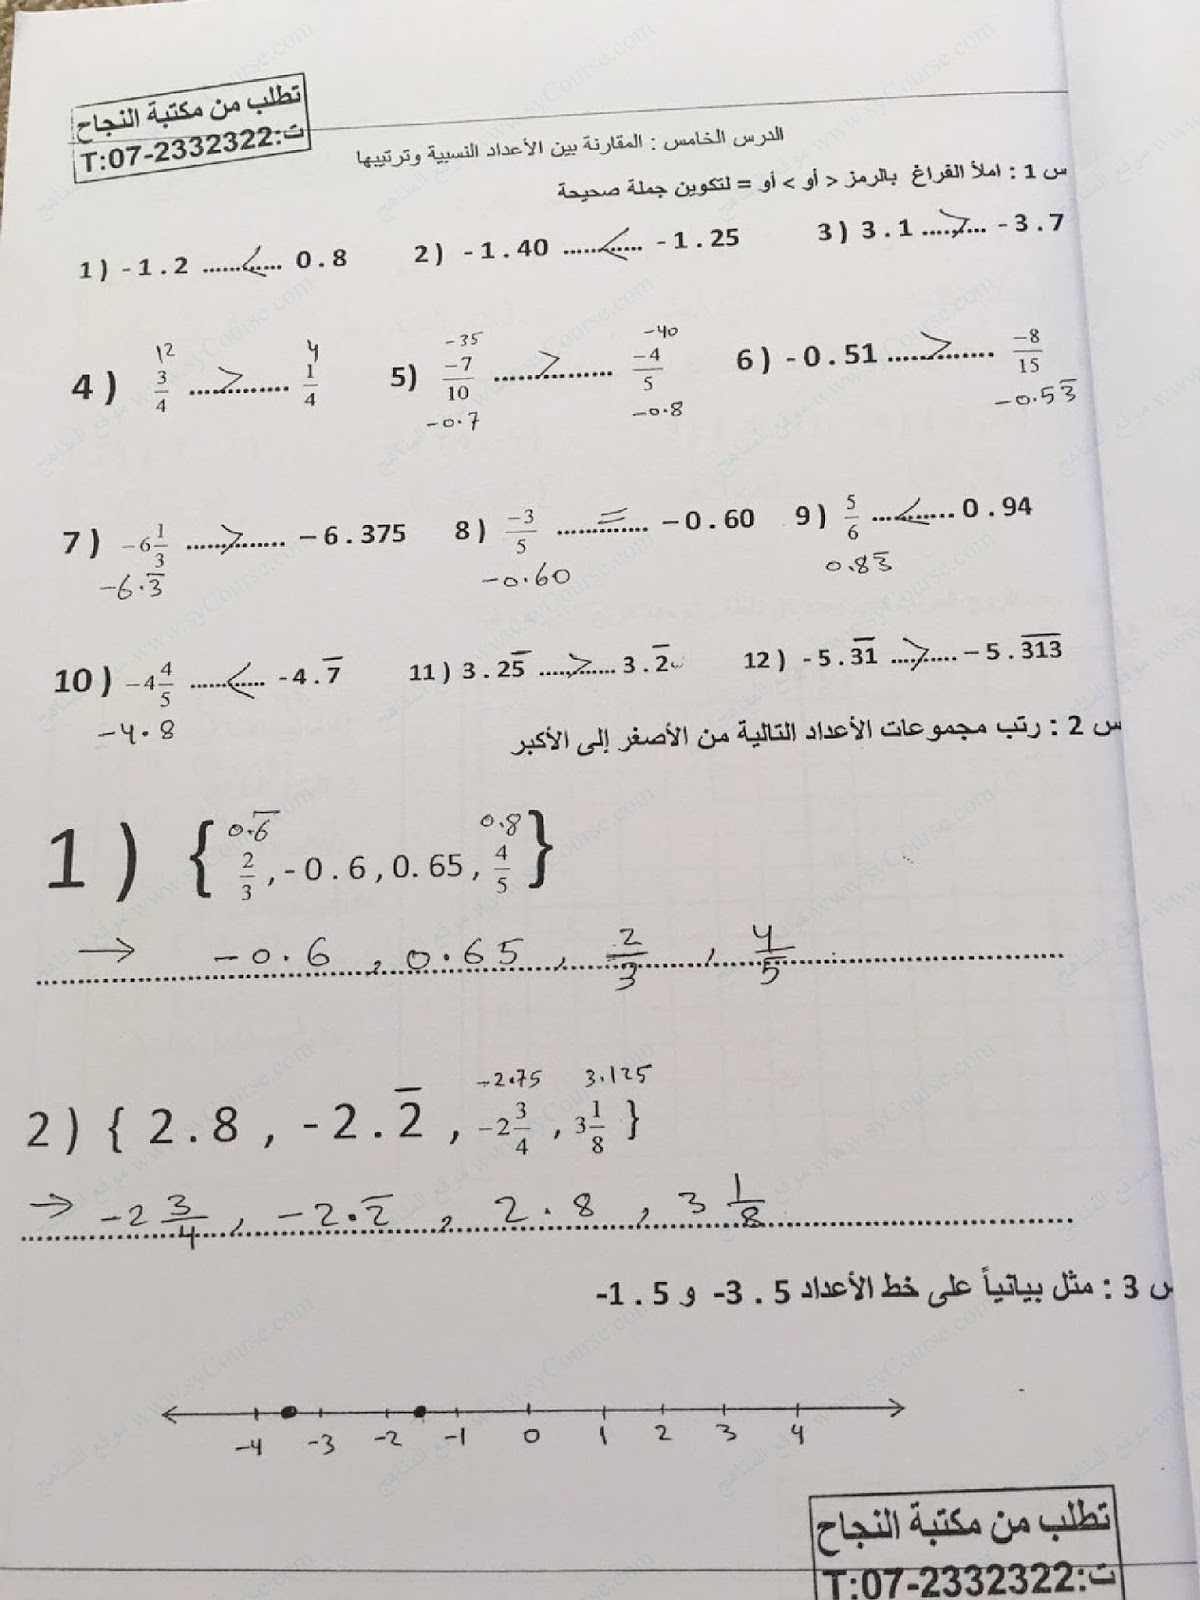 تطلب من مكتبة النجاح
ت:T:07-2332322
الدرس الخامس : المقارنة بين الأعداد النسبية وترتيبها
س 1 : املأ الفراغ بالرمز < أو > أو = لتكوين جملة صحيحة
1 ) -1.2 ......<...... 0.8 2 ) -1.40 ......<...... -1.25 3 ) 3.1 ......>...... -3.7
12 4 -35 -40
4 ) 3/4 ......>...... 1/4 5) -7/10 ......>...... -4/5 6 ) -0.51 ......>...... -8/15
-0.7 -0.8 -0.53̅
7 ) -6 1/3 ......>...... -6.375 8 ) -3/5 ......=...... -0.60 9 ) 5/6 ......<...... 0.94
-6.3̅ -0.60 0.83̅
10 ) -4 4/5 ......<...... -4.7̅ 11 ) 3.25̅ ......>...... 3.2̅ 12 ) -5.3̅1̅ ......>...... -5.3̅1̅3̅
-4.8
س 2 : رتب مجموعات الأعداد التالية من الأصغر إلى الأكبر
0.6̅ 0.8
1 ) { 2/3 , -0.6 , 0.65 , 4/5 }
→ -0.6 , 0.65 , 2/3 , 4/5
-2.75 3.125
2 ) { 2.8 , -2.2̅ , -2 3/4 , 3 1/8 }
→ -2 3/4 , -2.2̅ , 2.8 , 3 1/8
س 3 : مثل بيانياً على خط الأعداد -3.5 و -1.5
-4 -3 -2 -1 0 1 2 3 4
تطلب من مكتبة النجاح
ت:T:07-2332322
موقع المناهج www.syCourse.com